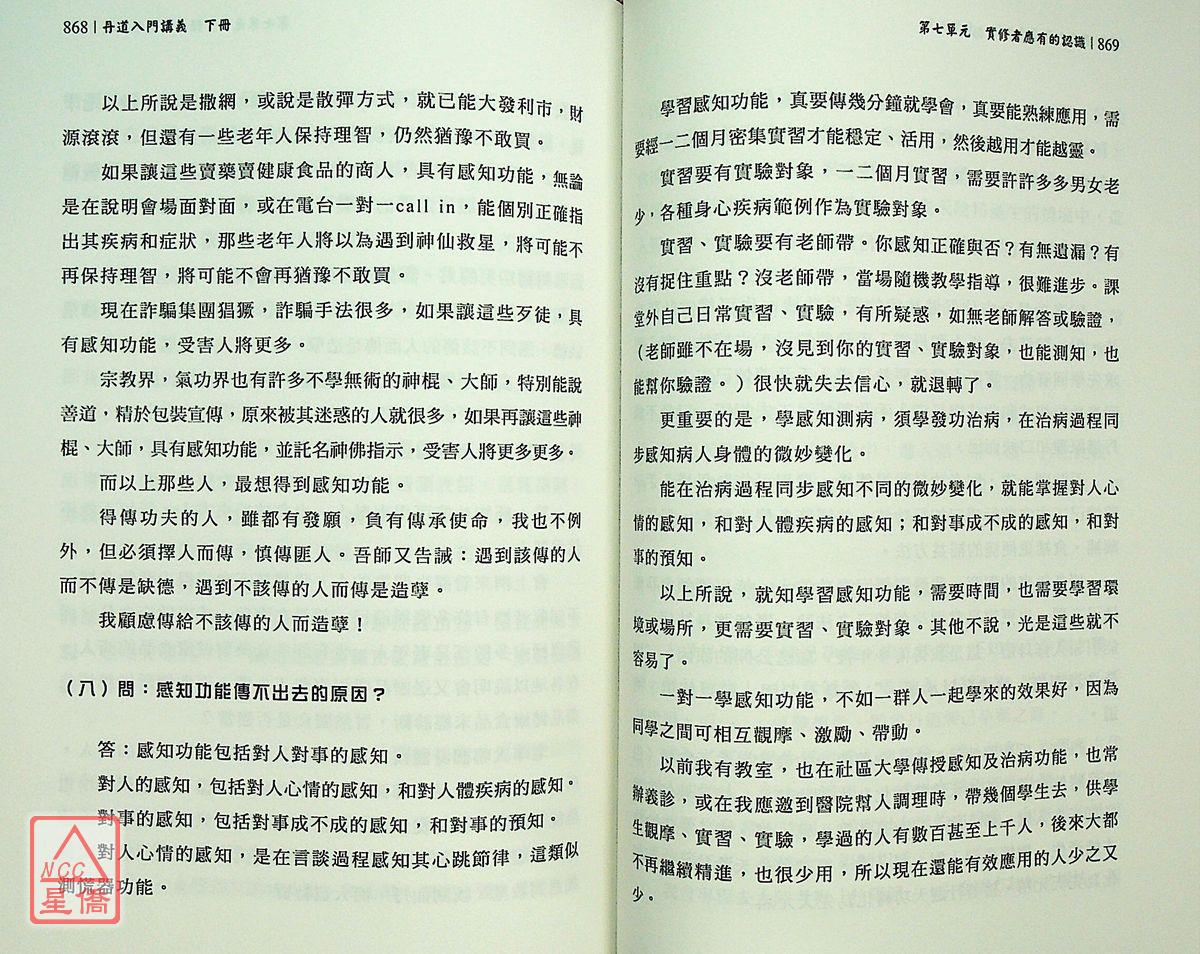 868 | 丹道入門講義　下冊
以上所說是撒網，或說是散彈方式，就已能大發利市，財
源滾滾，但還有一些老年人保持理智，仍然猶豫不敢買。
如果讓這些賣藥賣健康食品的商人，具有感知功能，無論
是在說明會場面對面，或在電台一對一call in，能個別正確指
出其疾病和症狀，那些老年人將以為遇到神仙救星，將可能不
再保持理智，將可能不會再猶豫不敢買。
現在詐騙集團猖獗，詐騙手法很多，如果讓這些歹徒，具
有感知功能，受害人將更多。
宗教界，氣功界也有許多不學無術的神棍、大師，特別能說
善道，精於包裝宣傳，原來被其迷惑的人就很多，如果再讓這些神
棍、大師，具有感知功能，並託名神佛指示，受害人將更多更多。
而以上那些人，最想得到感知功能。
得傳功夫的人，雖都有發願，負有傳承使命，我也不例
外，但必須擇人而傳，慎傳匪人。吾師又告誡：遇到該傳的人
而不傳是缺德，遇到不該傳的人而傳是造孽。
我顧慮傳給不該傳的人而造孽！
（八）問：感知功能傳不出去的原因？
答：感知功能包括對人對事的感知。
對人的感知，包括對人心情的感知，和對人體疾病的感知。
對事的感知，包括對事成不成的感知，和對事的預知。
對人心情的感知，是在言談過程感知其心跳節律，這類似
測謊器功能。
NCC
星僑
第七單元　實修者應有的認識 | 869
學習感知功能，真要傳幾分鐘就學會，真要能熟練應用，需
要經一二個月密集實習才能穩定、活用，然後越用才能越靈。
實習要有實驗對象，一二個月實習，需要許許多多男女老
少，各種身心疾病範例作為實驗對象。
實習、實驗要有老師帶。你感知正確與否？有無遺漏？有
沒有捉住重點？沒老師帶，當場隨機教學指導，很難進步。課
堂外自己日常實習、實驗，有所疑惑，如無老師解答或驗證，
（老師雖不在場，沒見到你的實習、實驗對象，也能測知，也
能幫你驗證。）很快就失去信心，就退轉了。
更重要的是，學感知測病，須學發功治病，在治病過程同
步感知病人身體的微妙變化。
能在治病過程同步感知不同的微妙變化，就能掌握對人心
情的感知，和對人體疾病的感知；和對事成不成的感知，和對
事的預知。
以上所說，就知學習感知功能，需要時間，也需要學習環
境或場所，更需要實習、實驗對象。其他不說，光是這些就不
容易了。
一對一學感知功能，不如一群人一起學來的效果好，因為
同學之間可相互觀摩、激勵、帶動。
以前我有教室，也在社區大學傳授感知及治病功能，也常
辦義診，或在我應邀到醫院幫人調理時，帶幾個學生去，供學
生觀摩、實習、實驗，學過的人有數百甚至上千人，後來大都
不再繼續精進，也很少用，所以現在還能有效應用的人少之又
少。